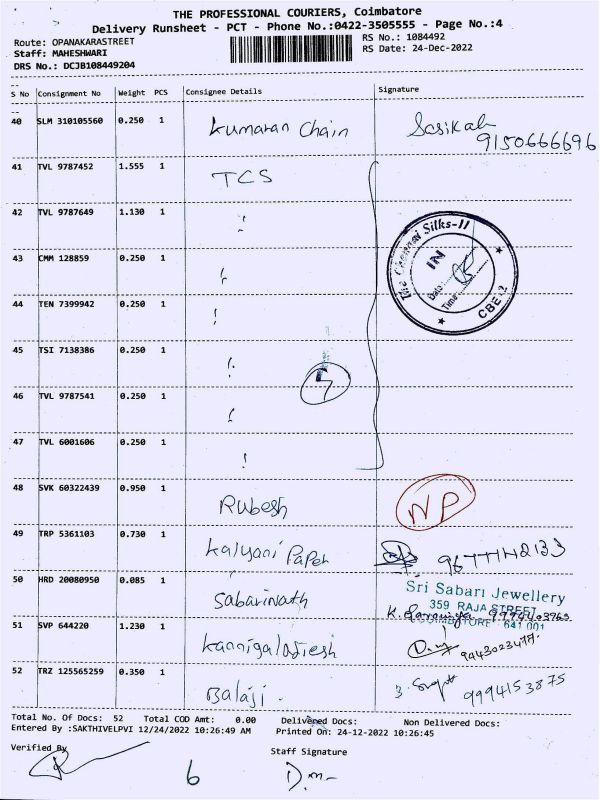 THE PROFESSIONAL COURIERS, Coimbatore
Delivery Runsheet - PCT - Phone No.:0422-3505555 - Page No.:4
Route: OPANAKARASTREET
Staff: MAHESHWARI
DRS No.: DCJB108449204
RS No.: 1084492
RS Date: 24-Dec-2022
S No Consignment No Weight PCS Consignee Details Signature
40 SLM 310105560 0.250 1 Kumaran Chain Sasikala 9150666696
41 TVL 9787452 1.555 1 TCS
42 TVL 9787649 1.130 1 "
43 CMM 128859 0.250 1 "
44 TEN 7399942 0.250 1 "
45 TSI 7138386 0.250 1 "
46 TVL 9787541 0.250 1 "
47 TVL 6001606 0.250 1 "
The Chennai Silks-II
IN
Date:
Time:
CBE-2
48 SVK 60322439 0.950 1 Rubesh NP
49 TRP 5361103 0.730 1 Kalyani Paper
50 HRD 20080950 0.085 1 Sabarinath
Sri Sabari Jewellery
359 RAJA STREET
COIMBATORE - 641 001
51 SVP 644220 1.230 1 9443023477
52 TRZ 125565259 0.350 1 Balaji. 9994153875
Total No. Of Docs: 52 Total COD Amt: 0.00 Delivered Docs: Non Delivered Docs:
Entered By :SAKTHIVELPVI 12/24/2022 10:26:49 AM Printed On: 24-12-2022 10:26:45
Verified By
Staff Signature
6